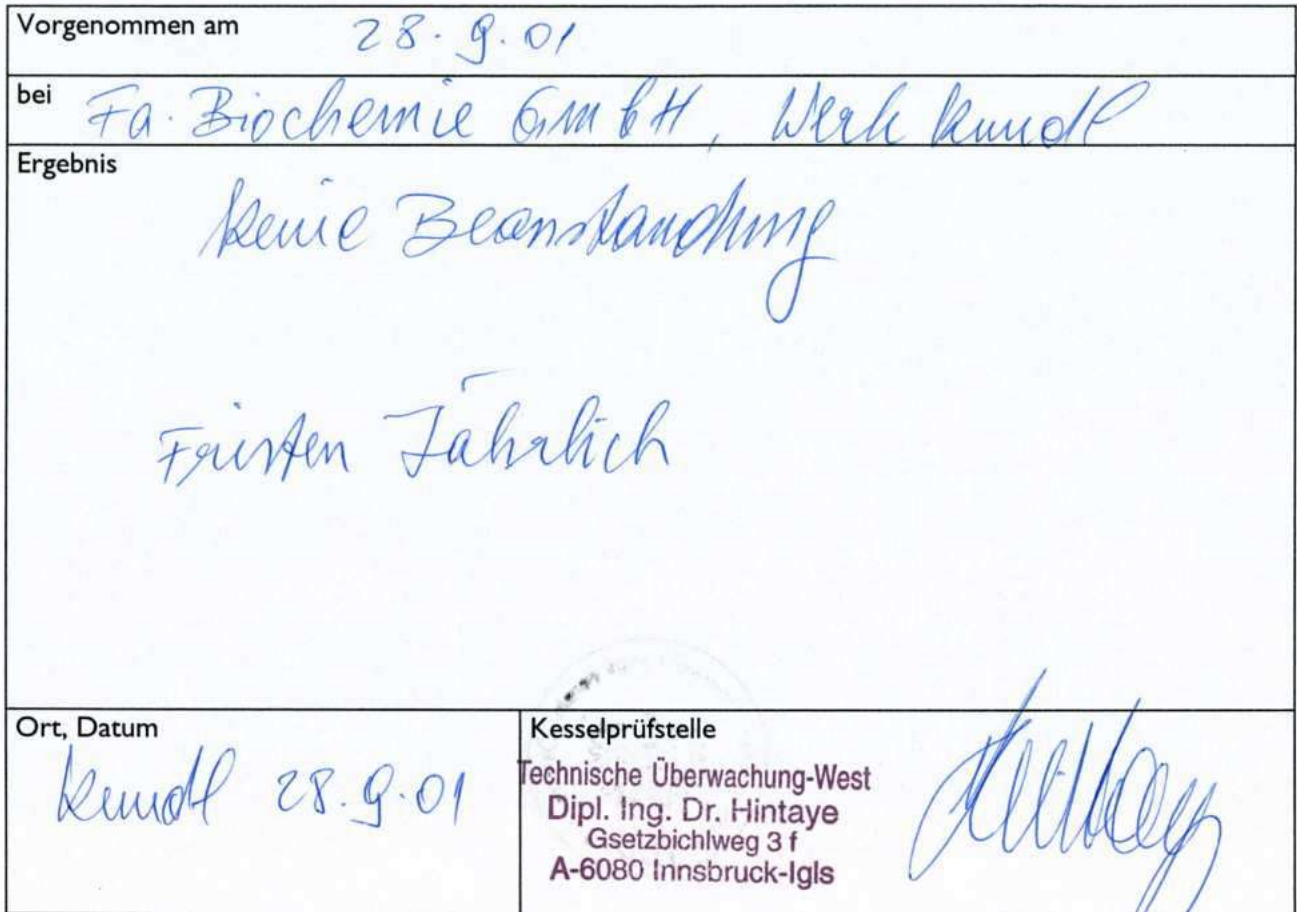 Vorgenommen am 28.9.01
bei Fa. Biochemie GmbH, Werk Kundl
Ergebnis
keine Beanstandung
Fristen Jährlich
Ort, Datum
Kundl 28.9.01
Kesselprüfstelle
Technische Überwachung-West
Dipl. Ing. Dr. Hintaye
Gsetzbichlweg 3 f
A-6080 Innsbruck-Igls